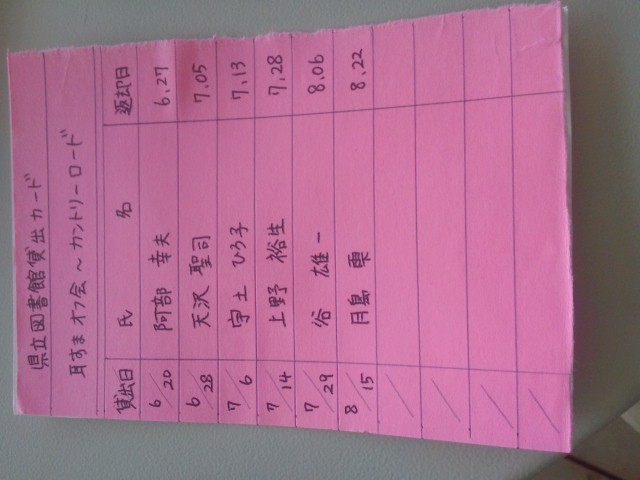 県立図書館貸出カード
耳すまオフ会～カントリーロード
貸出日 氏 名 返却日
6/20 阿部 幸夫 6.27
6/28 天沢 聖司 7.05
7/6 宇土 ひろ子 7.13
7/14 上野 裕生 7.28
7/29 谷 雄一 8.06
8/15 月島 雫 8.22
/
/
/
/